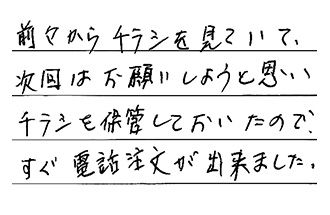 前々からチラシを見ていて、
次回はお願いしようと思い
チラシを保管しておいたので、
すぐ電話注文が出来ました。